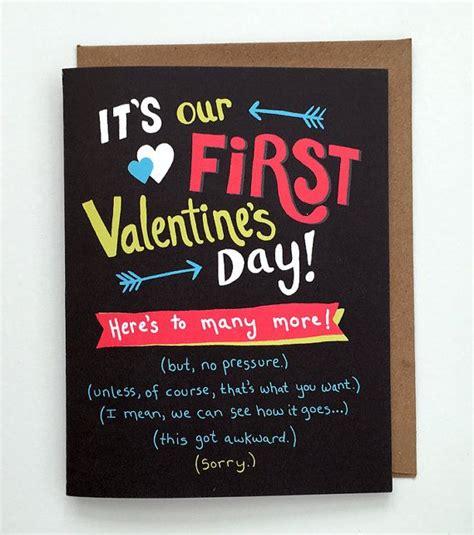 IT'S our
FiRST
Valentine's
DAY!
Here's to many more!
(but, no pressure.)
(unless, of course, that's what you want.)
(I mean, we can see how it goes...)
(this got awkward.)
(Sorry.)